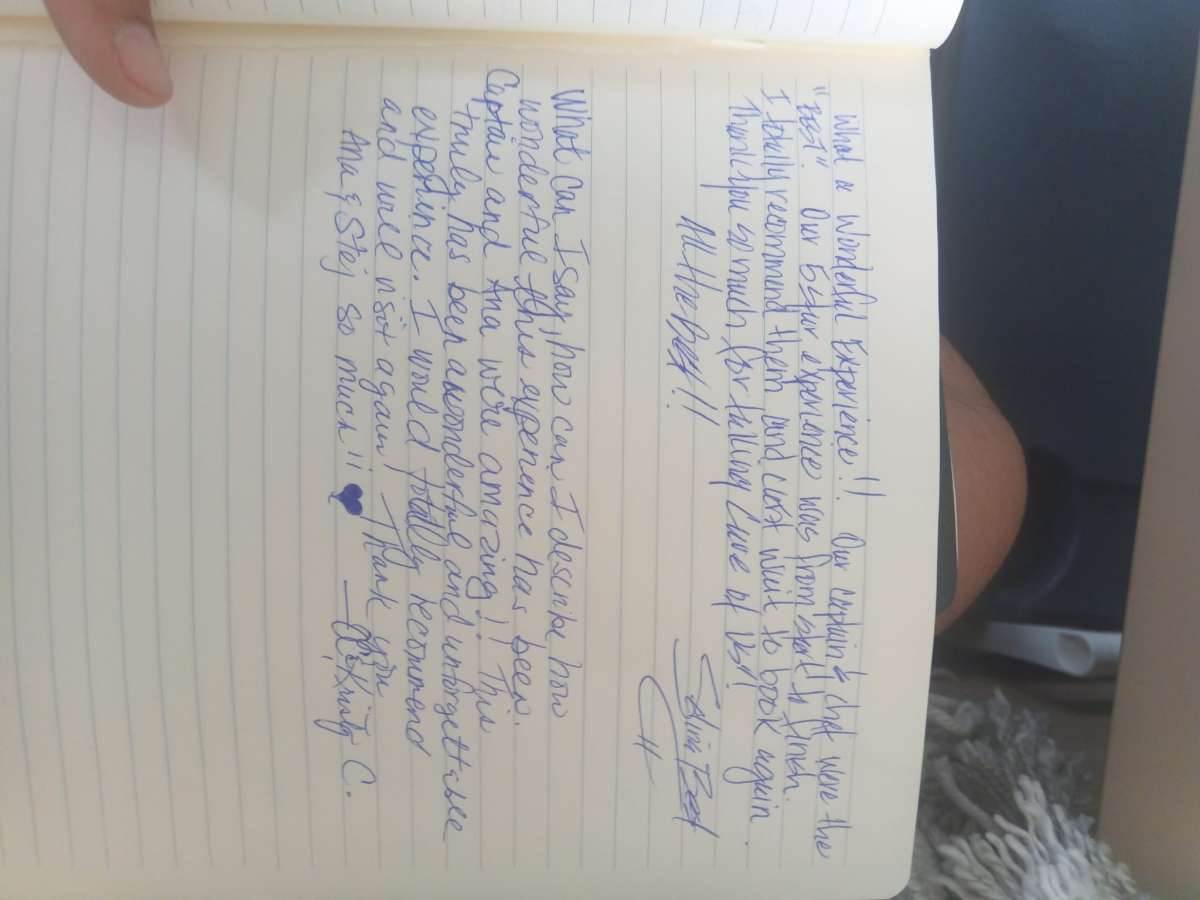 What a Wonderful Experience!! Our captain & chef were the
"best". Our 5 star experience was from start to finish.
I totally recommend them and cant wait to book again.
Thank you so much for taking care of us!
All the best!!
What Can I say, how can I describe how
wonderful this experience has been.
Captain and Ana were amazing!! This
truly has been a wonderful and unforgettable
experince. I would totally recommend
and will visit again! Thank you
Ana & Stej so much!!
C.